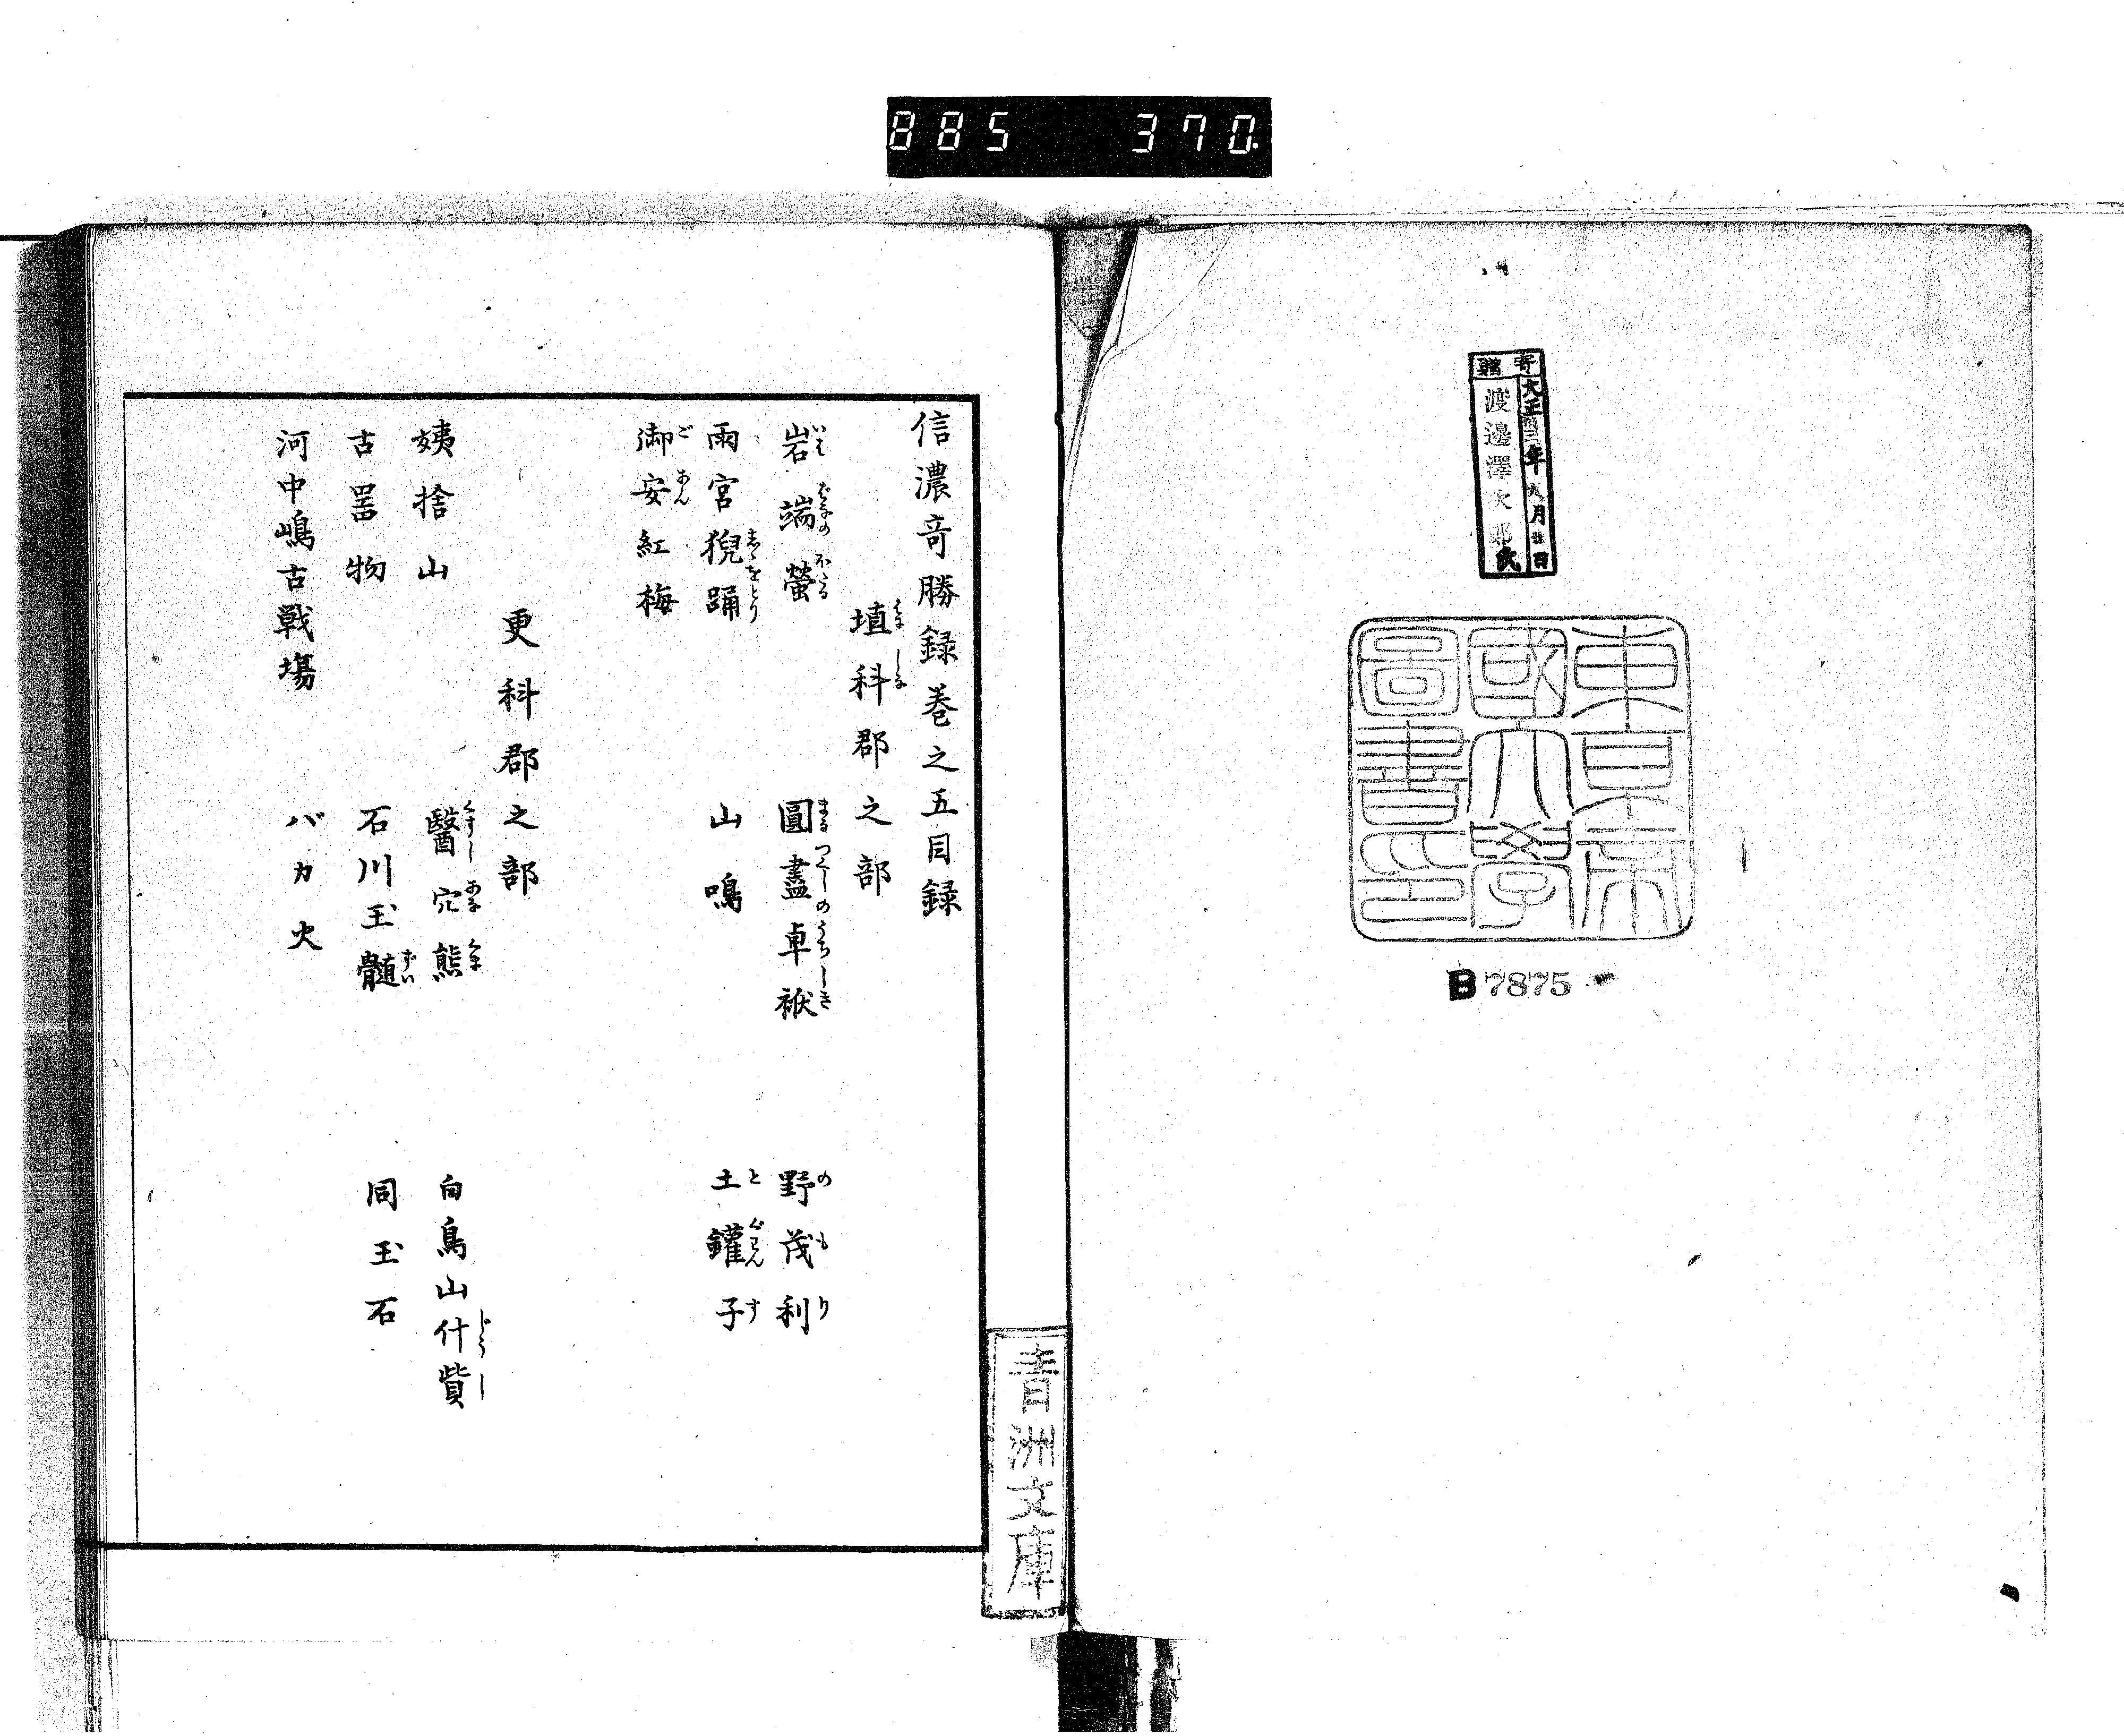 885 370
寄贈
大正十三年九月 日
渡邊澤次郎氏
東京帝
國大學
圖書印
B7875
青洲文庫
信濃奇勝録巻之五目録
埴科郡之部
岩端螢 圓盡卓袱 野茂利
雨宮猊踊 山鳴 土鑵子
御安紅梅
更科郡之部
姨捨山 醫穴熊 白鳥山什貲
古噐物 石川玉髄 同玉石
河中嶋古戦塲 バカ火